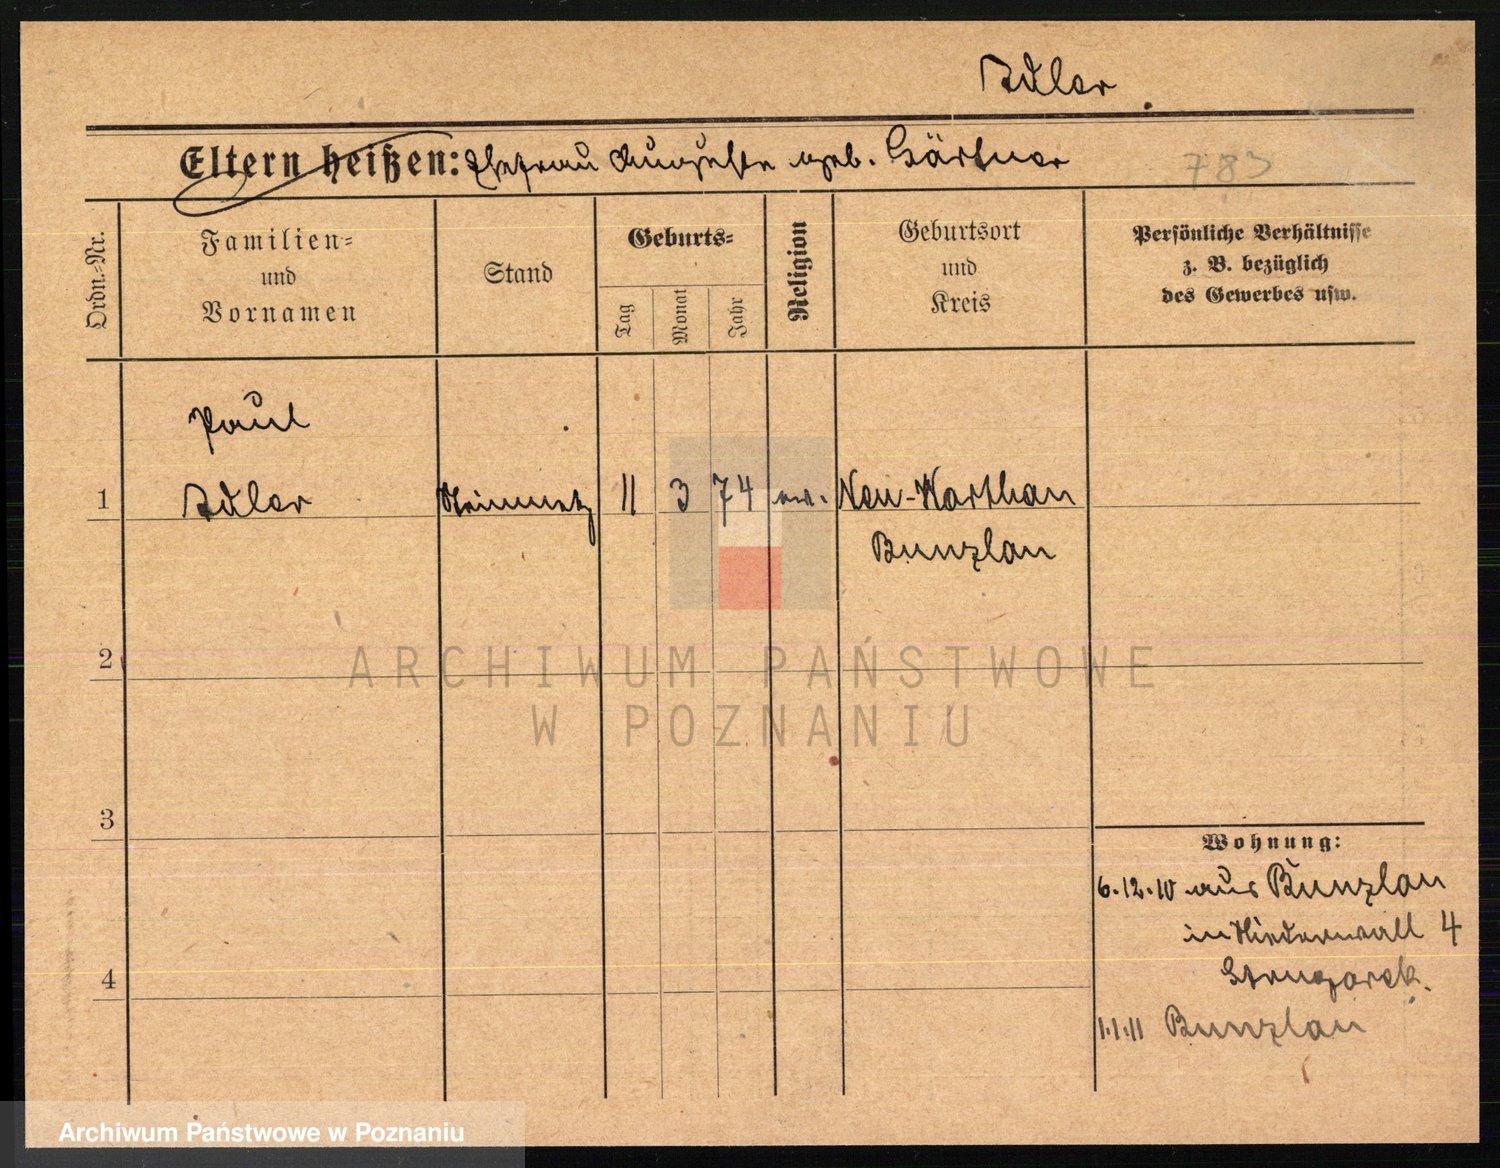 Adler
Eltern heißen: Ehefrau Auguste geb. Gärtner
783
Ordn.-Nr.
Familien-
und
Vornamen
Stand
Geburts-
Tag
Monat
Jahr
Religion
Geburtsort
und
Kreis
Persönliche Verhältnisse
z. B. bezüglich
des Gewerbes usw.
Paul
1 Adler Steinmetz 11 3 74 ev. Neu-Warthau
Bunzlau
2
ARCHIWUM PAŃSTWOWE
W POZNANIU
3
Wohnung:
6.12.10 aus Bunzlau
in Niederwall 4
4
1.1.11 Bunzlau
Archiwum Państwowe w Poznaniu